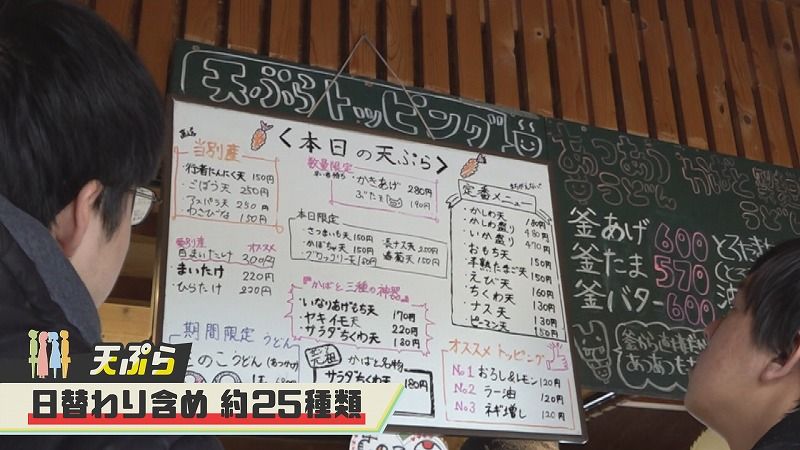 天ぷらトッピング
<本日の天ぷら>
当別産
・行者にんにく天 150円
・ごぼう天 250円
・アスパラ天 250円
・わさびな 150円
当別産 オススメ
白まいたけ 300円
まいたけ 220円
ひらたけ 220円
期間限定 うどん
数量限定
・かきあげ 280円
・ぶた天 190円
本日限定
・さつまいも天 150円
・かぼちゃ天 150円
・ブロッコリー天 150円
・長ナス天 200円
・春菊天 150円
『かばと三種の神器』
・いなりあげもち天 170円
・ヤキイモ天 220円
・サラダちくわ天 180円
元祖 かばと名物
サラダちくわ天 180円
定番メニュー
・かしわ天 180円
・かしわ盛り 480円
・いか盛り 470円
・おもち天 150円
・半熟たまご天 150円
・えび天 160円
・ちくわ天 130円
・ナス天 130円
・ピーマン天 150円
オススメトッピング
No1 おろし&レモン 120円
No.2 ラー油 120円
No.3 ネギ増し 120円
あつあつ
うどん
かばと製麺所
うどん
釜あげ 600
釜たま 570
釜バター 600
天ぷら
日替わり含め 約25種類